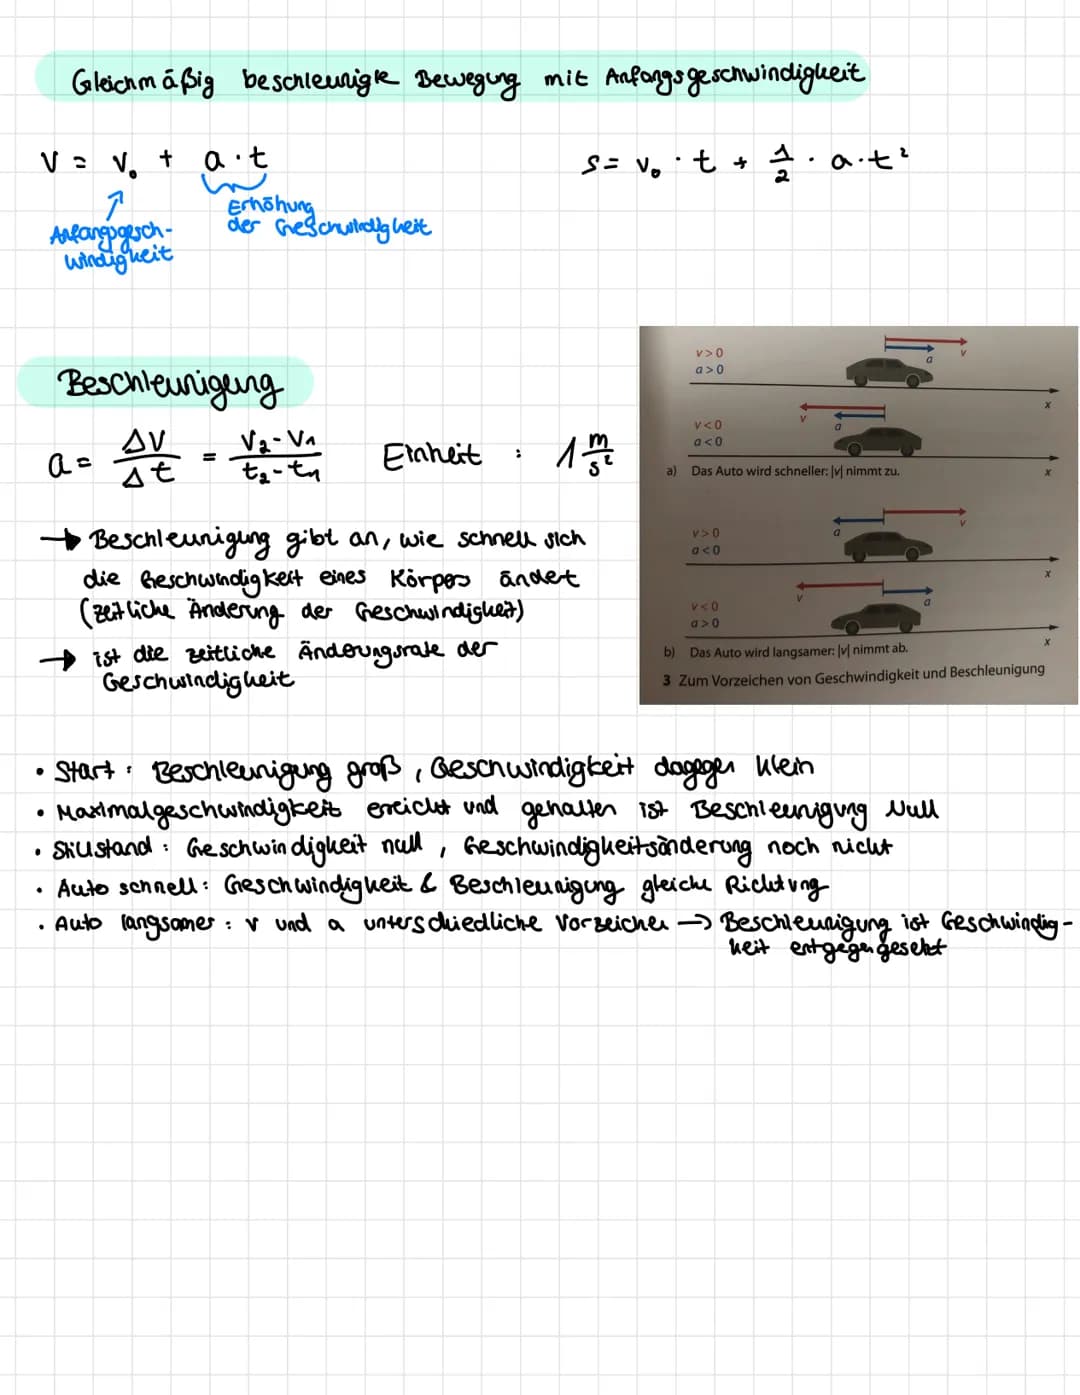 Gleichmäßig beschleunigte Bewegung mit Anfangsgeschwindigkeit
v = v₀ + a · t
s = v₀ · t + 1/2 · a · t²
Anfangsgesch-
windigkeit
Erhöhung
der Geschwindigkeit
Beschleunigung
a = Δv/Δt = (v₂ - v₁)/(t₂ - t₁) Einheit : 1 m/s²
→ Beschleunigung gibt an, wie schnell sich
die Geschwindigkeit eines Körpers ändert
(zeitliche Änderung der Geschwindigkeit)
→ ist die zeitliche Änderungsrate der
Geschwindigkeit
v > 0
a > 0
a
v
x
v < 0
a < 0
v
a
x
a) Das Auto wird schneller: |v| nimmt zu.
v > 0
a < 0
a
v
x
v < 0
a > 0
v
a
x
b) Das Auto wird langsamer: |v| nimmt ab.
3 Zum Vorzeichen von Geschwindigkeit und Beschleunigung
• Start : Beschleunigung groß, Geschwindigkeit dagegen klein
• Maximalgeschwindigkeit erreicht und gehalten ist Beschleunigung Null
• Stillstand : Geschwindigkeit null, Geschwindigkeitsänderung noch nicht
• Auto schnell : Geschwindigkeit & Beschleunigung gleiche Richtung
• Auto langsamer : v und a unterschiedliche Vorzeichen → Beschleunigung ist Geschwindig-
keit entgegengesetzt